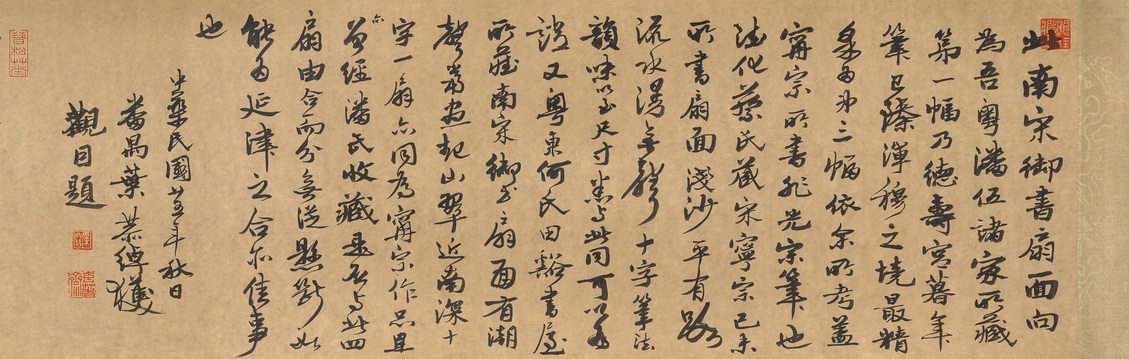 此南宋御書扇面向
為吾粵潘伍諸家所藏
第一幅乃德壽宮暮年
筆已臻渾穆之境最精
第二三幅依余所考蓋
寗宗所書非光宗筆也
法化蔡氏藏宋寧宗已未
所書扇面淺沙平有路
流水漫無聲十字筆法
韻味以至尺寸悉与此同可以為
證又粵東何氏田谿書屋
所藏南宋御書扇面有湖
聲當晝起山翠近南深十
字一扇亦同為寗宗作品且
亦曾經潘氏收藏是否与此四
扇由合而分無從懸斷如
能為延津之合亦佳事
也
中華民國廿五年秋日
番禺葉恭綽獲
觀目題